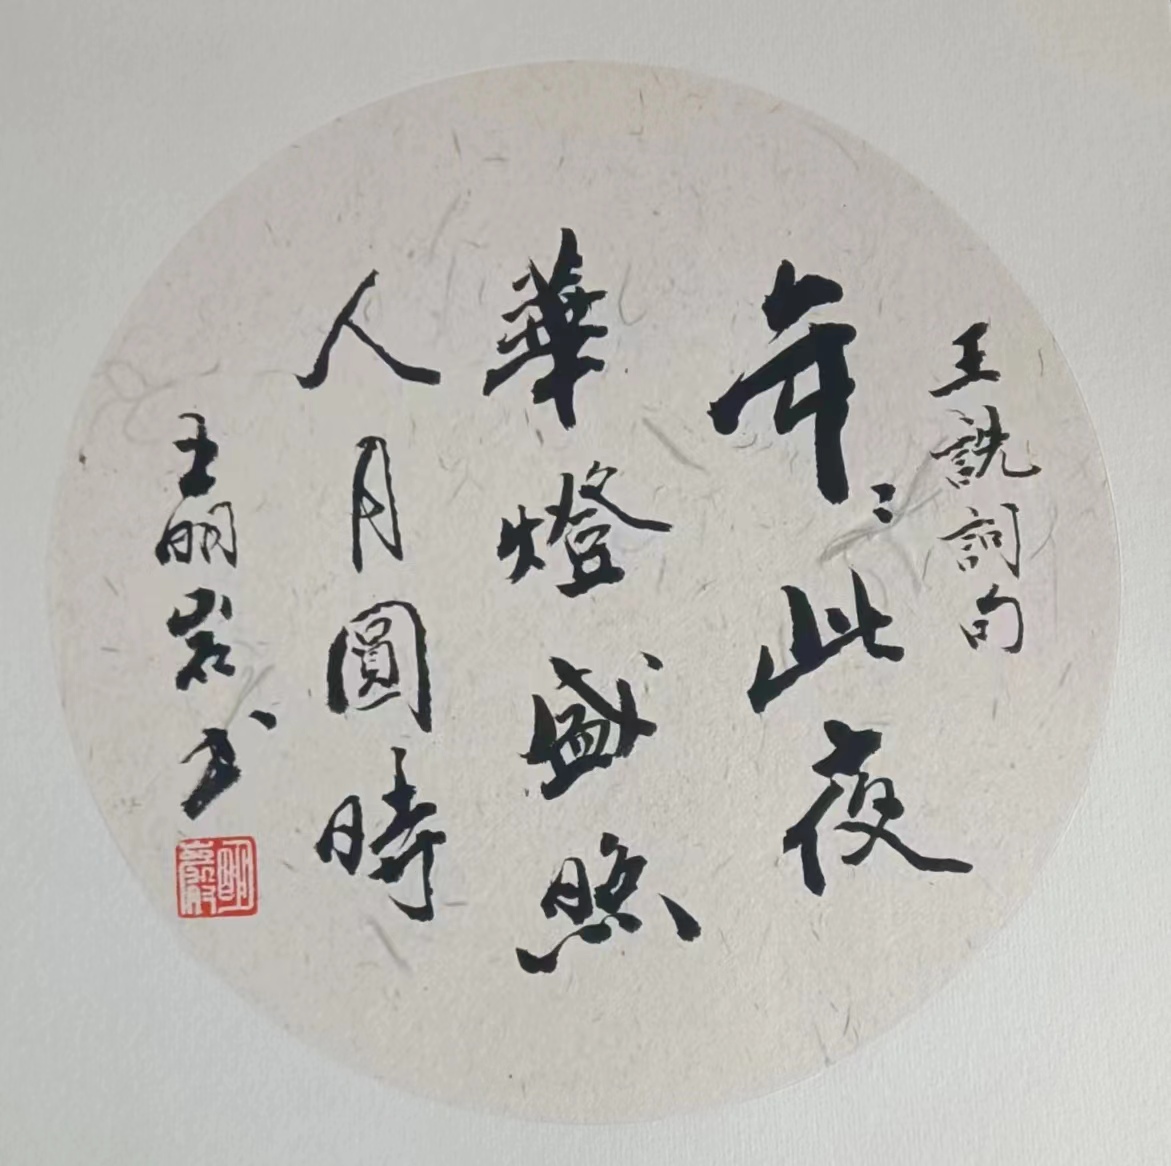 王詵詞句
年〻此夜
華燈盛照
人月圓時
王明岩书
明巖